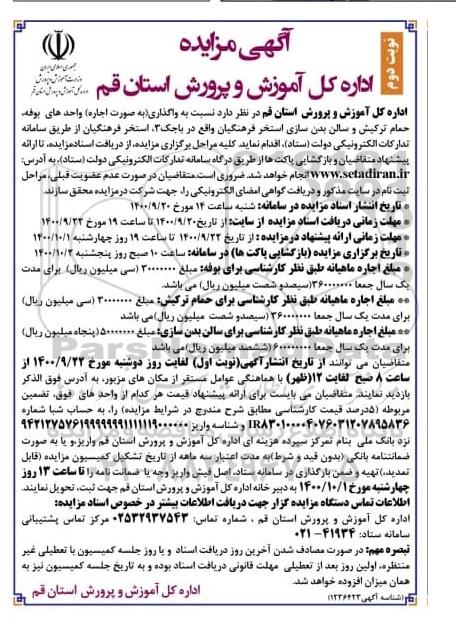 آگهی مزایده
نوبت دوم
اداره کل آموزش و پرورش استان قم
جمهوری اسلامی ایران
وزارت آموزش و پرورش
اداره کل آموزش و پرورش استان قم
اداره کل آموزش و پرورش استان قم در نظر دارد نسبت به واگذاری(به صورت اجاره) واحد های بوفه،
حمام ترکیش و سالن بدن سازی استخر فرهنگیان واقع در باجک۳، استخر فرهنگیان از طریق سامانه
تدارکات الکترونیکی دولت (ستاد)، اقدام نماید. کلیه مراحل برگزاری مزایده، از دریافت اسنادمزایده، تا ارائه
پیشنهاد متقاضیان و بازگشایی پاکت ها از طریق درگاه سامانه تدارکات الکترونیکی دولت (ستاد)، به آدرس:
www.setadiran.ir انجام خواهد شد. ضروری است متقاضیان در صورت عدم عضویت قبلی، مراحل
ثبت نام در سایت مذکور و دریافت گواهی امضای الکترونیکی را، جهت شرکت درمزایده محقق سازند.
* تاریخ انتشار اسناد مزایده در سامانه: شنبه ساعت ۱۴ مورخ ۱۴۰۰/۹/۲۰
* مهلت زمانی دریافت اسناد مزایده از سایت: از تاریخ ۱۴۰۰/۹/۲۰ تا ساعت ۱۹ مورخ ۱۴۰۰/۹/۲۲
* مهلت زمانی ارائه پیشنهاد درمزایده : از تاریخ ۱۴۰۰/۹/۲۲ تا ساعت ۱۹ روز چهارشنبه ۱۴۰۰/۱۰/۱
* تاریخ برگزاری مزایده (بازگشایی پاکت ها) در سامانه: ساعت ۱۰ صبح روز پنجشنبه ۱۴۰۰/۱۰/۲
** مبلغ اجاره ماهیانه طبق نظر کارشناسی برای بوفه: مبلغ ۳۰۰۰۰۰۰۰ (سی میلیون ریال) برای مدت
یک سال جمعا ۳۶۰۰۰۰۰۰۰ (سیصدو شصت میلیون ریال) می باشد.
** مبلغ اجاره ماهیانه طبق نظر کارشناسی برای حمام ترکیش: مبلغ ۳۰۰۰۰۰۰۰ (سی میلیون ریال)
برای مدت یک سال جمعا ۳۶۰۰۰۰۰۰۰ (سیصدو شصت میلیون ریال)می باشد
** مبلغ اجاره ماهیانه طبق نظر کارشناسی برای سالن بدن سازی: مبلغ ۵۰۰۰۰۰۰۰ (پنجاه میلیون ریال)
برای مدت یک سال جمعا ۶۰۰۰۰۰۰۰۰ (ششصد میلیون ریال)می باشد
متقاضیان می توانند از تاریخ انتشارآگهی(نوبت اول) لغایت روز دوشنبه مورخ ۱۴۰۰/۹/۲۲ از
ساعت ۸ صبح لغایت ۱۲(ظهر) با هماهنگی عوامل مستقر از مکان های مزبور، به آدرس فوق الذکر
بازدید نمایند. متقاضیان می بایست برای ارائه پیشنهاد قیمت هر کدام از واحد های فوق، تضمین
مربوطه (۵درصد قیمت کارشناسی مطابق شرح مندرج در شرایط مزایده) را، به حساب شبا شماره
نزد بانک ملی بنام تمرکز سپرده هزینه ای اداره کل آموزش و پرورش استان قم واریز،و یا به صورت
ضمانتنامه بانکی،(بدون قید و شرط)به مدت اعتبار سه ماهه از تاریخ تشکیل کمیسیون مزایده (قابل
تمدید)،تهیه و ضمن بارگذاری در سامانه ستاد، اصل فیش واریز وجه یا ضمانت نامه را تا ساعت ۱۳ روز
چهارشنبه مورخ ۱۴۰۰/۱۰/۱ به دبیر خانه اداره کل آموزش و پرورش استان قم جهت ثبت، تحویل نمایند.
اطلاعات تماس دستگاه مزایده گزار جهت دریافت اطلاعات بیشتر در خصوص اسناد مزایده:
اداره کل آموزش و پرورش استان قم ، شماره تماس: ۰۲۵۳۲۹۳۷۵۴۳ مرکز تماس پشتیبانی
سامانه ستاد: ۴۱۹۳۴- ۰۲۱
تبصره مهم: در صورت مصادف شدن آخرین روز دریافت اسناد و یا روز جلسه کمیسیون با تعطیلی غیر
منتظره، اولین روز بعد از تعطیلی مهلت قانونی دریافت اسناد بوده و به تاریخ جلسه کمیسیون نیز به
همان میزان افزوده خواهد شد.
اداره کل آموزش و پرورش استان قم
(شناسه آگهی ۱۲۳۶۴۲۳)